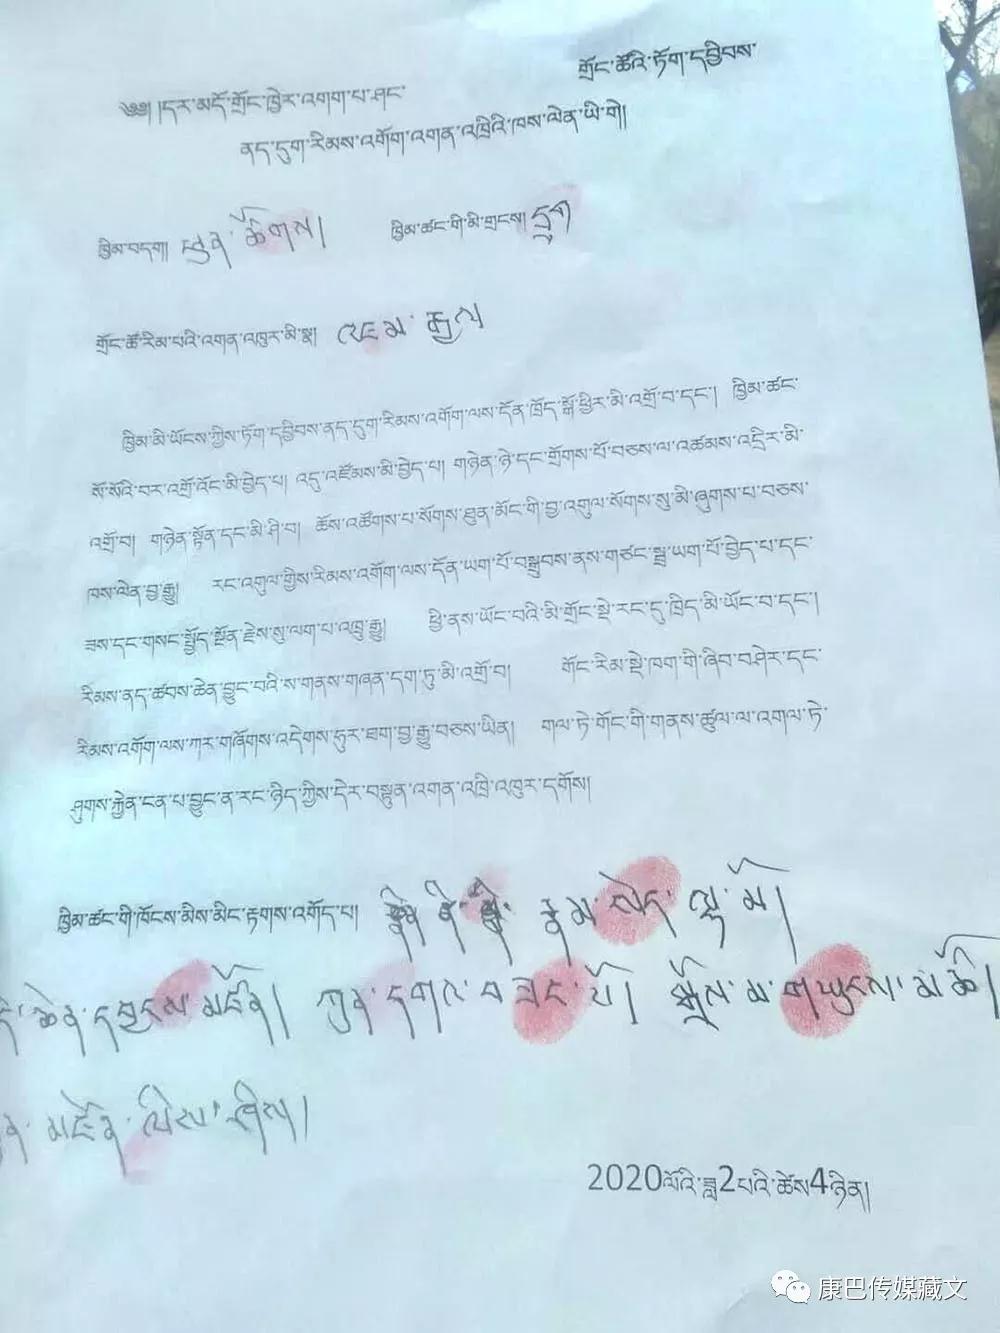 གྲོང་ཚོའི་ཏོག་དབྱིབས་
༄༅། །དར་མདོ་གྲོང་ཁྱེར་འགག་པ་ཤང་
ནད་དུག་རིམས་འགོག་འགན་འཁྲིའི་ཁས་ལེན་ཡི་གེ།
ཁྱིམ་བདག། ཕུན་ཚོགས། ཁྱིམ་ཚང་གི་མི་གྲངས། དྲུག
གྲོང་ཚོ་རིམ་པའི་འགན་འཁུར་མི་སྣ། འཇམ་རྒྱལ
ཁྱིམ་མི་ཡོངས་ཀྱིས་ཏོག་དབྱིབས་ནད་དུག་རིམས་འགོག་ལས་དོན་ཁྲོད་སྒོ་ཕྱིར་མི་འགྲོ་བ་དང་། ཁྱིམ་ཚང་
སོ་སོའི་བར་འགྲོ་འོང་མི་བྱེད་པ། འདུ་འཛོམས་མི་བྱེད་པ། གཉེན་ཉེ་དང་གྲོགས་པོ་བཅས་ལ་འཚམས་འདྲིར་མི་
འགྲོ་བ། གཉེན་སྟོན་དང་མི་ཤི་བ། ཆོས་འཚོགས་པ་སོགས་ཐུན་མོང་གི་བྱ་འགུལ་སོགས་སུ་མི་ཞུགས་པ་བཅས་
ཁས་ལེན་བྱ་རྒྱུ། རང་འགུལ་གྱིས་རིམས་འགོག་ལས་དོན་ཡག་པོ་བསྒྲུབས་ནས་གཙང་སྦྲ་ཡག་པོ་བྱེད་པ་དང་
ཟས་དང་གསང་སྤྱོད་སྔོན་རྗེས་སུ་ལག་པ་འཁྲུ་རྒྱུ། ཕྱི་ནས་ཡོང་བའི་མི་གྲོང་སྡེ་རང་དུ་ཁྲིད་མི་ཡོང་བ་དང་།
རིམས་ནད་ཚབས་ཆེན་བྱུང་བའི་ས་གནས་གཞན་དག་ཏུ་མི་འགྲོ་བ། གོང་རིམ་སྡེ་ཁག་གི་ཞིབ་བཤེར་དང་
རིམས་འགོག་ལས་ཀར་གཞོགས་འདེགས་ཧུར་ཐག་བྱ་རྒྱུ་བཅས་ཡིན། གལ་ཏེ་གོང་གི་གནས་ཚུལ་ལ་འགལ་ཏེ་
ཤུགས་རྐྱེན་ངན་པ་བྱུང་ན་རང་ཉིད་ཀྱིས་དེར་བསྟུན་འགན་འཁྲི་འཁུར་དགོས།
ཁྱིམ་ཚང་གི་ཁོངས་མིས་མིང་རྟགས་འགོད་པ། རྣམ་སྲིད་ལྷ་མོ།
ཆེན་དབྱངས་མཛོན། ཀུན་དགའ་བཟང་པོ། སྒྲོལ་མ་གཡུངས་མཚོ།
2020ལོའི་ཟླ་2པའི་ཚེས་4ཉིན།
康巴传媒藏文